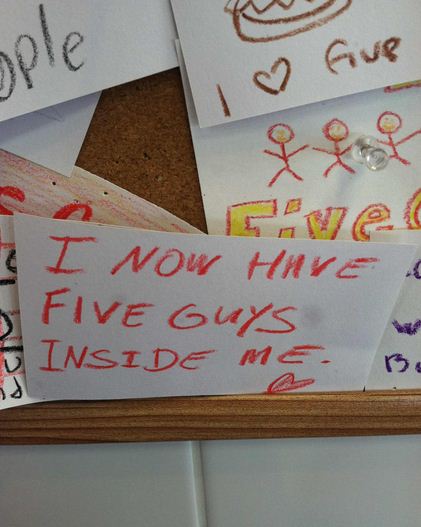 ople
I ♡ Five
Five
I NOW HAVE
FIVE GUYS
INSIDE ME.